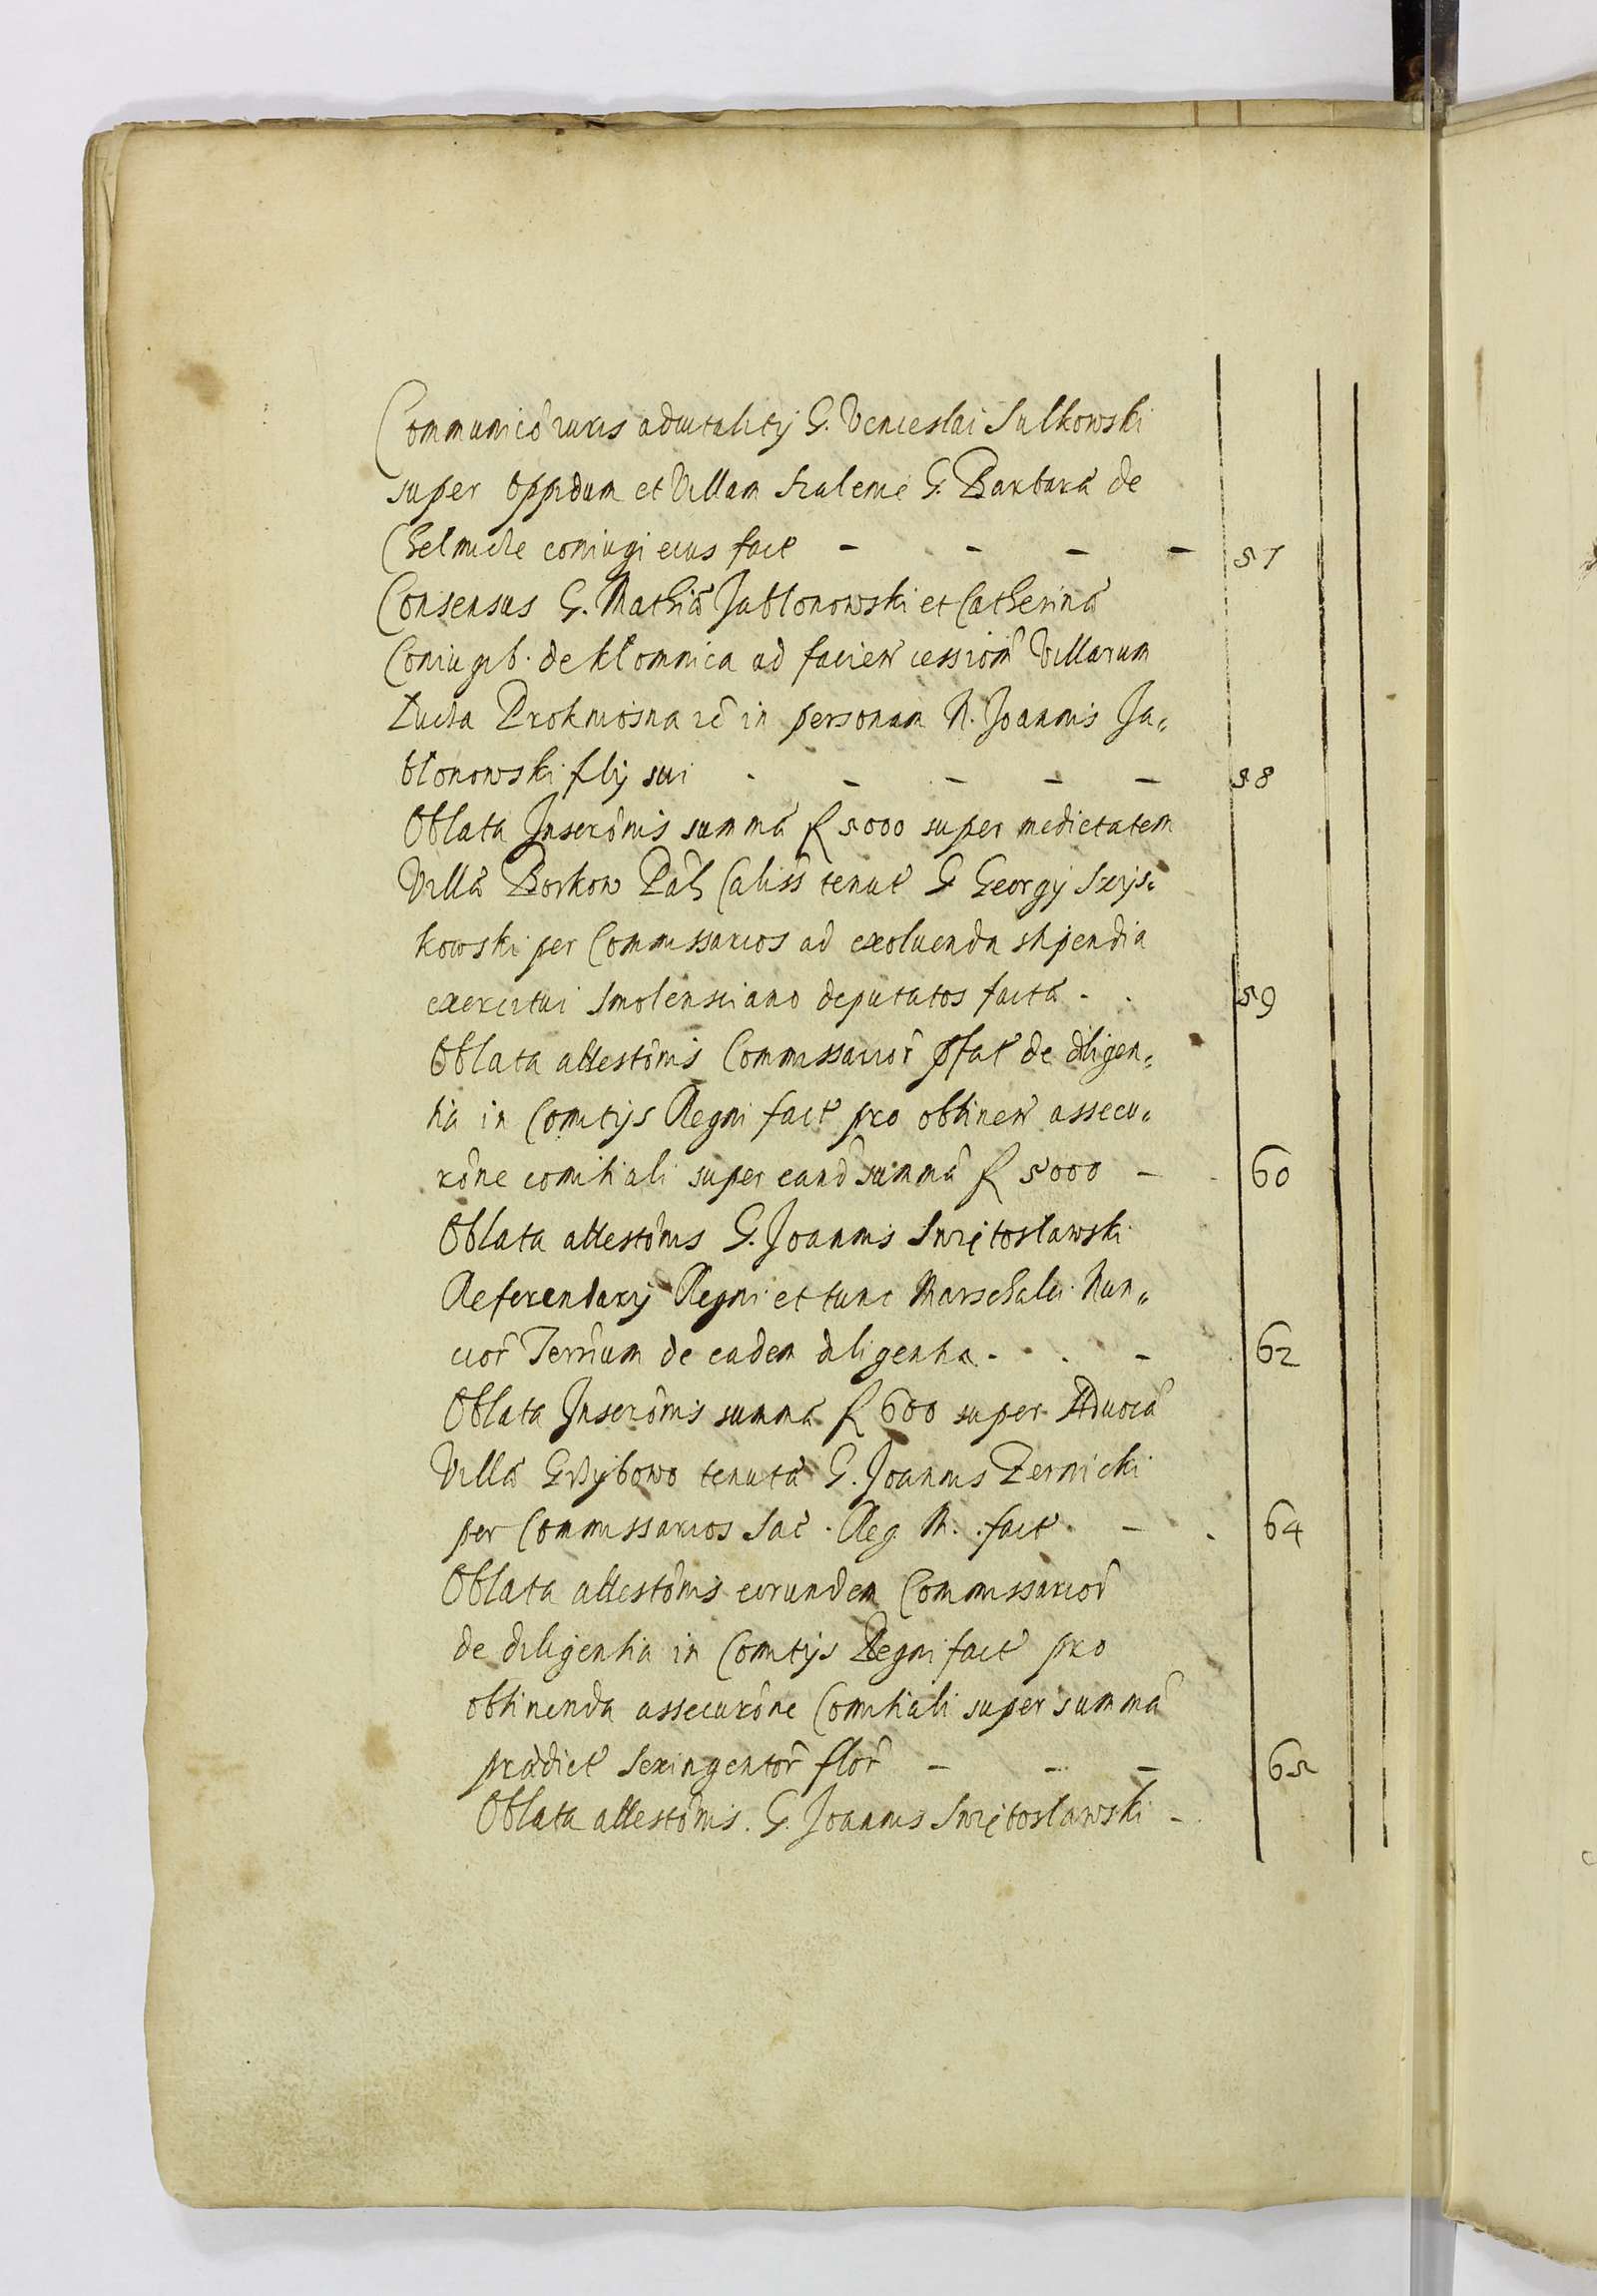 Communicõ iuris aduitalitij G. Venceslai Sulkowski
super Oppidum et Villam Szulenie G. Barbaræ de
Chelmicze coniugi eius fact̃ - - - - 57
Consensus G. Mathiæ Jabłonowski et Catherinæ
Coniugib. de Kłomnica ad faciend̃ cessionẽ Villarum
Łucka Prokniosna ic̃ in personam N. Joannis Ja-
błonowski filij sui - - - - - 58
Oblata Inscrõnis summæ fl 5000 super medietatem
Villæ Borkow Pal̃ Caliss̃ tenut̃ G Georgij Szys-
kowski per Commissarios ad exoluenda stipendia
exercitui Smolensciano deputatos factæ - . 59
Oblata attestõnis Commissarior̃ p̃fat̃ de diligen-
tia in Comitijs Regni fact̃ pro obtinen̄d assecu-
rõne comitiali super eand̃ summã fl 5000 - 60
Oblata attestõnis G. Joannis Swiętosławski
Referendarij Regni et tunc Marschalci Nun-
cior̃ Terr̃um de eadem diligentia - . . - 62
Oblata Inscrõnis summæ fl 600 super Aduocã
Villæ Grzybowo tenutæ G. Joannis Zernicki
per Commissarios Sac̃. Reg. M. fact̃. - . 64
Oblata attestõnis eorundem Commissarior̃
de diligentia in Comitijs Regni fact̃ pro
obtinenda assecurõne Comitiali super summã
prædict̃ sexingentor̃ flor̃ - - - 65
Oblata attestõnis. G. Joannis Swiętosławski -